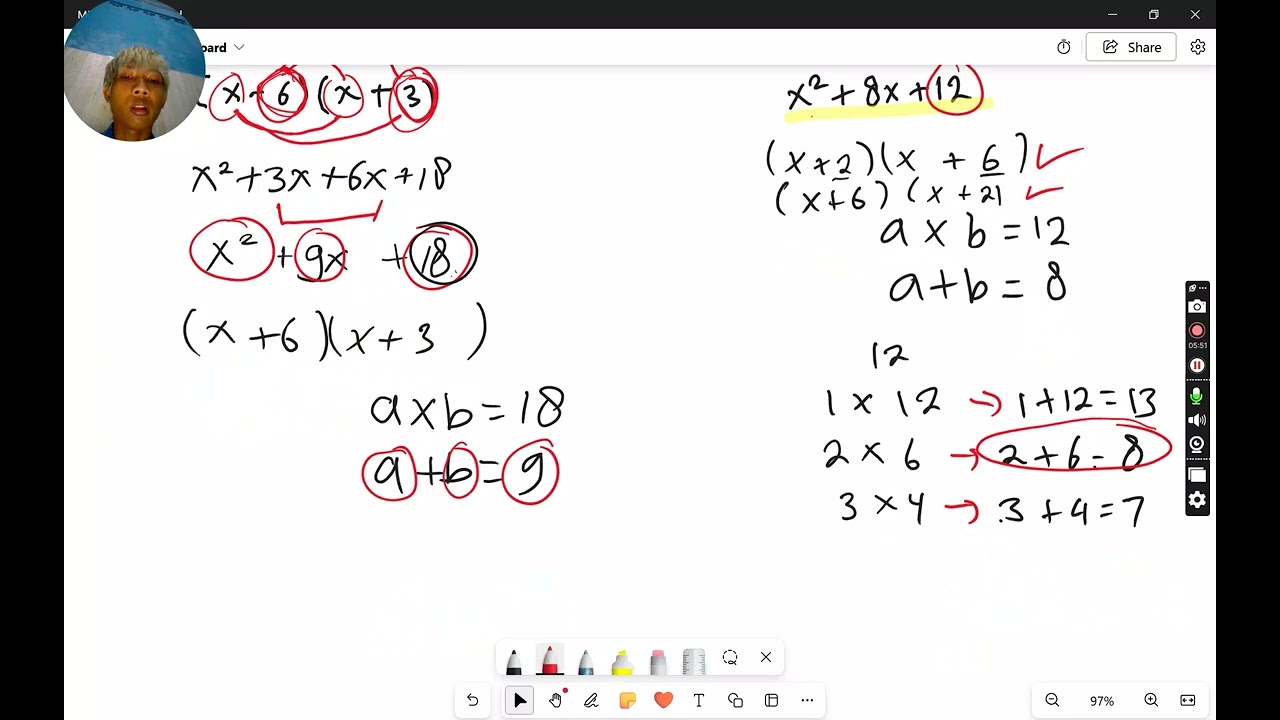 oard
Share
x - 6 (x + 3)
x² + 3x + 6x + 18
x² + 9x + 18
(x + 6)(x + 3)
a x b = 18
a + b = 9
x² + 8x + 12
(x + 2)(x + 6)
(x + 6) (x + 2)
a x b = 12
a + b = 8
12
1 x 12 → 1 + 12 = 13
2 x 6 → 2 + 6 = 8
3 x 4 → 3 + 4 = 7
05:51
97%